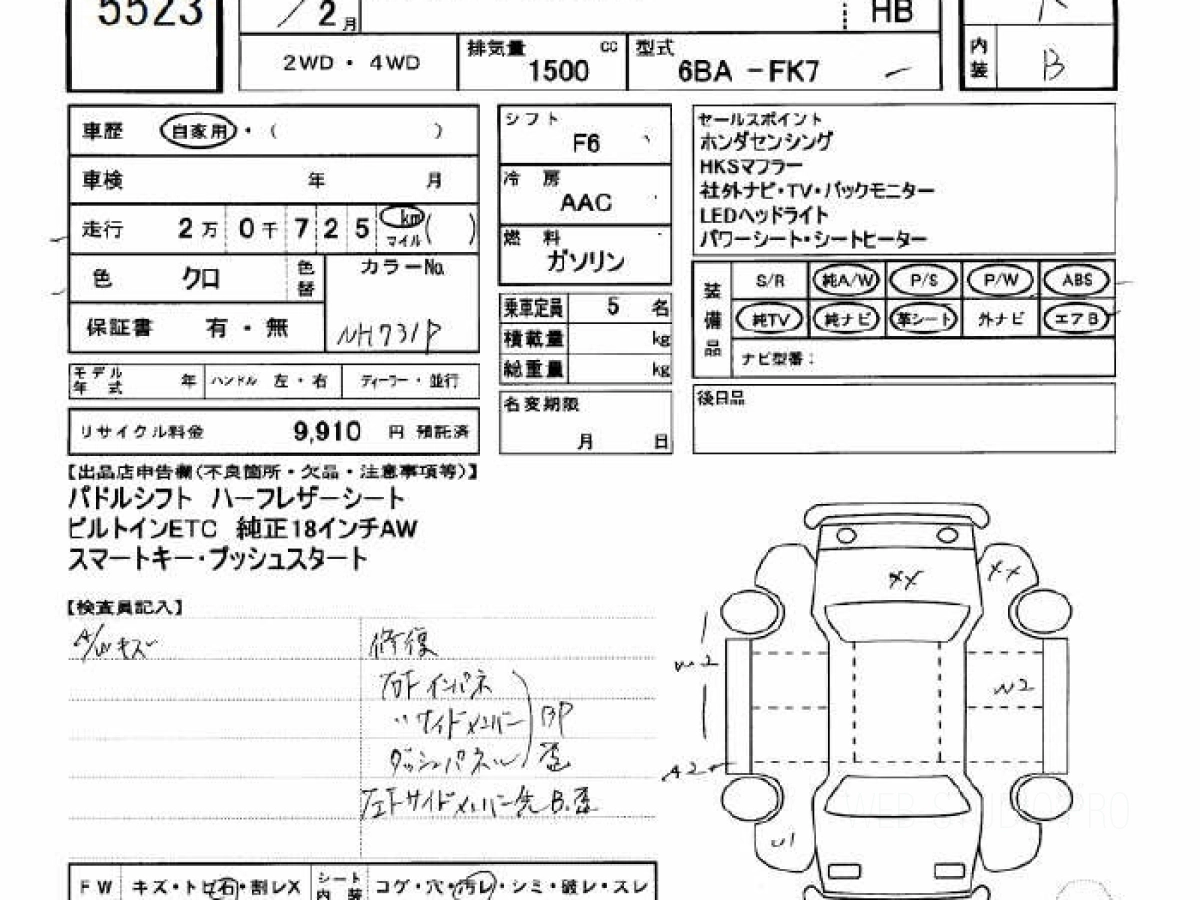 5523
/2月
HB
2WD・4WD
排気量 cc 1500
型式 6BA -FK7
内装 B
車歴 自家用・( )
車検 年 月
走行 2万 0千 7 2 5 km マイル ( )
色 クロ 色替
カラーNo. NH731P
保証書 有・無
モデル年式 年 ハンドル 左・右 ディーラー・並行
リサイクル料金 9,910 円 預託済
シフト F6
冷房 AAC
燃料 ガソリン
乗車定員 5 名
積載量 kg
総重量 kg
名変期限 月 日
セールスポイント
ホンダセンシング
HKSマフラー
社外ナビ・TV・バックモニター
LEDヘッドライト
パワーシート・シートヒーター
装備品 S/R 純A/W P/S P/W ABS
純TV 純ナビ 革シート 外ナビ エアB
ナビ型番:
後日品
【出品店申告欄(不良箇所・欠品・注意事項等)】
パドルシフト ハーフレザーシート
ビルトインETC 純正18インチAW
スマートキー・プッシュスタート
【検査員記入】
A/Wキズ
修復
右Fインパネ
〃サイドメンバー BP
ダッシュパネル 歪
左Fサイドメンバー先 B.歪
XX
XX
W2
W2
A2
U1
FW キズ・トビ石・割レX
シート内装 コゲ・穴・汚レ・シミ・破レ・スレ